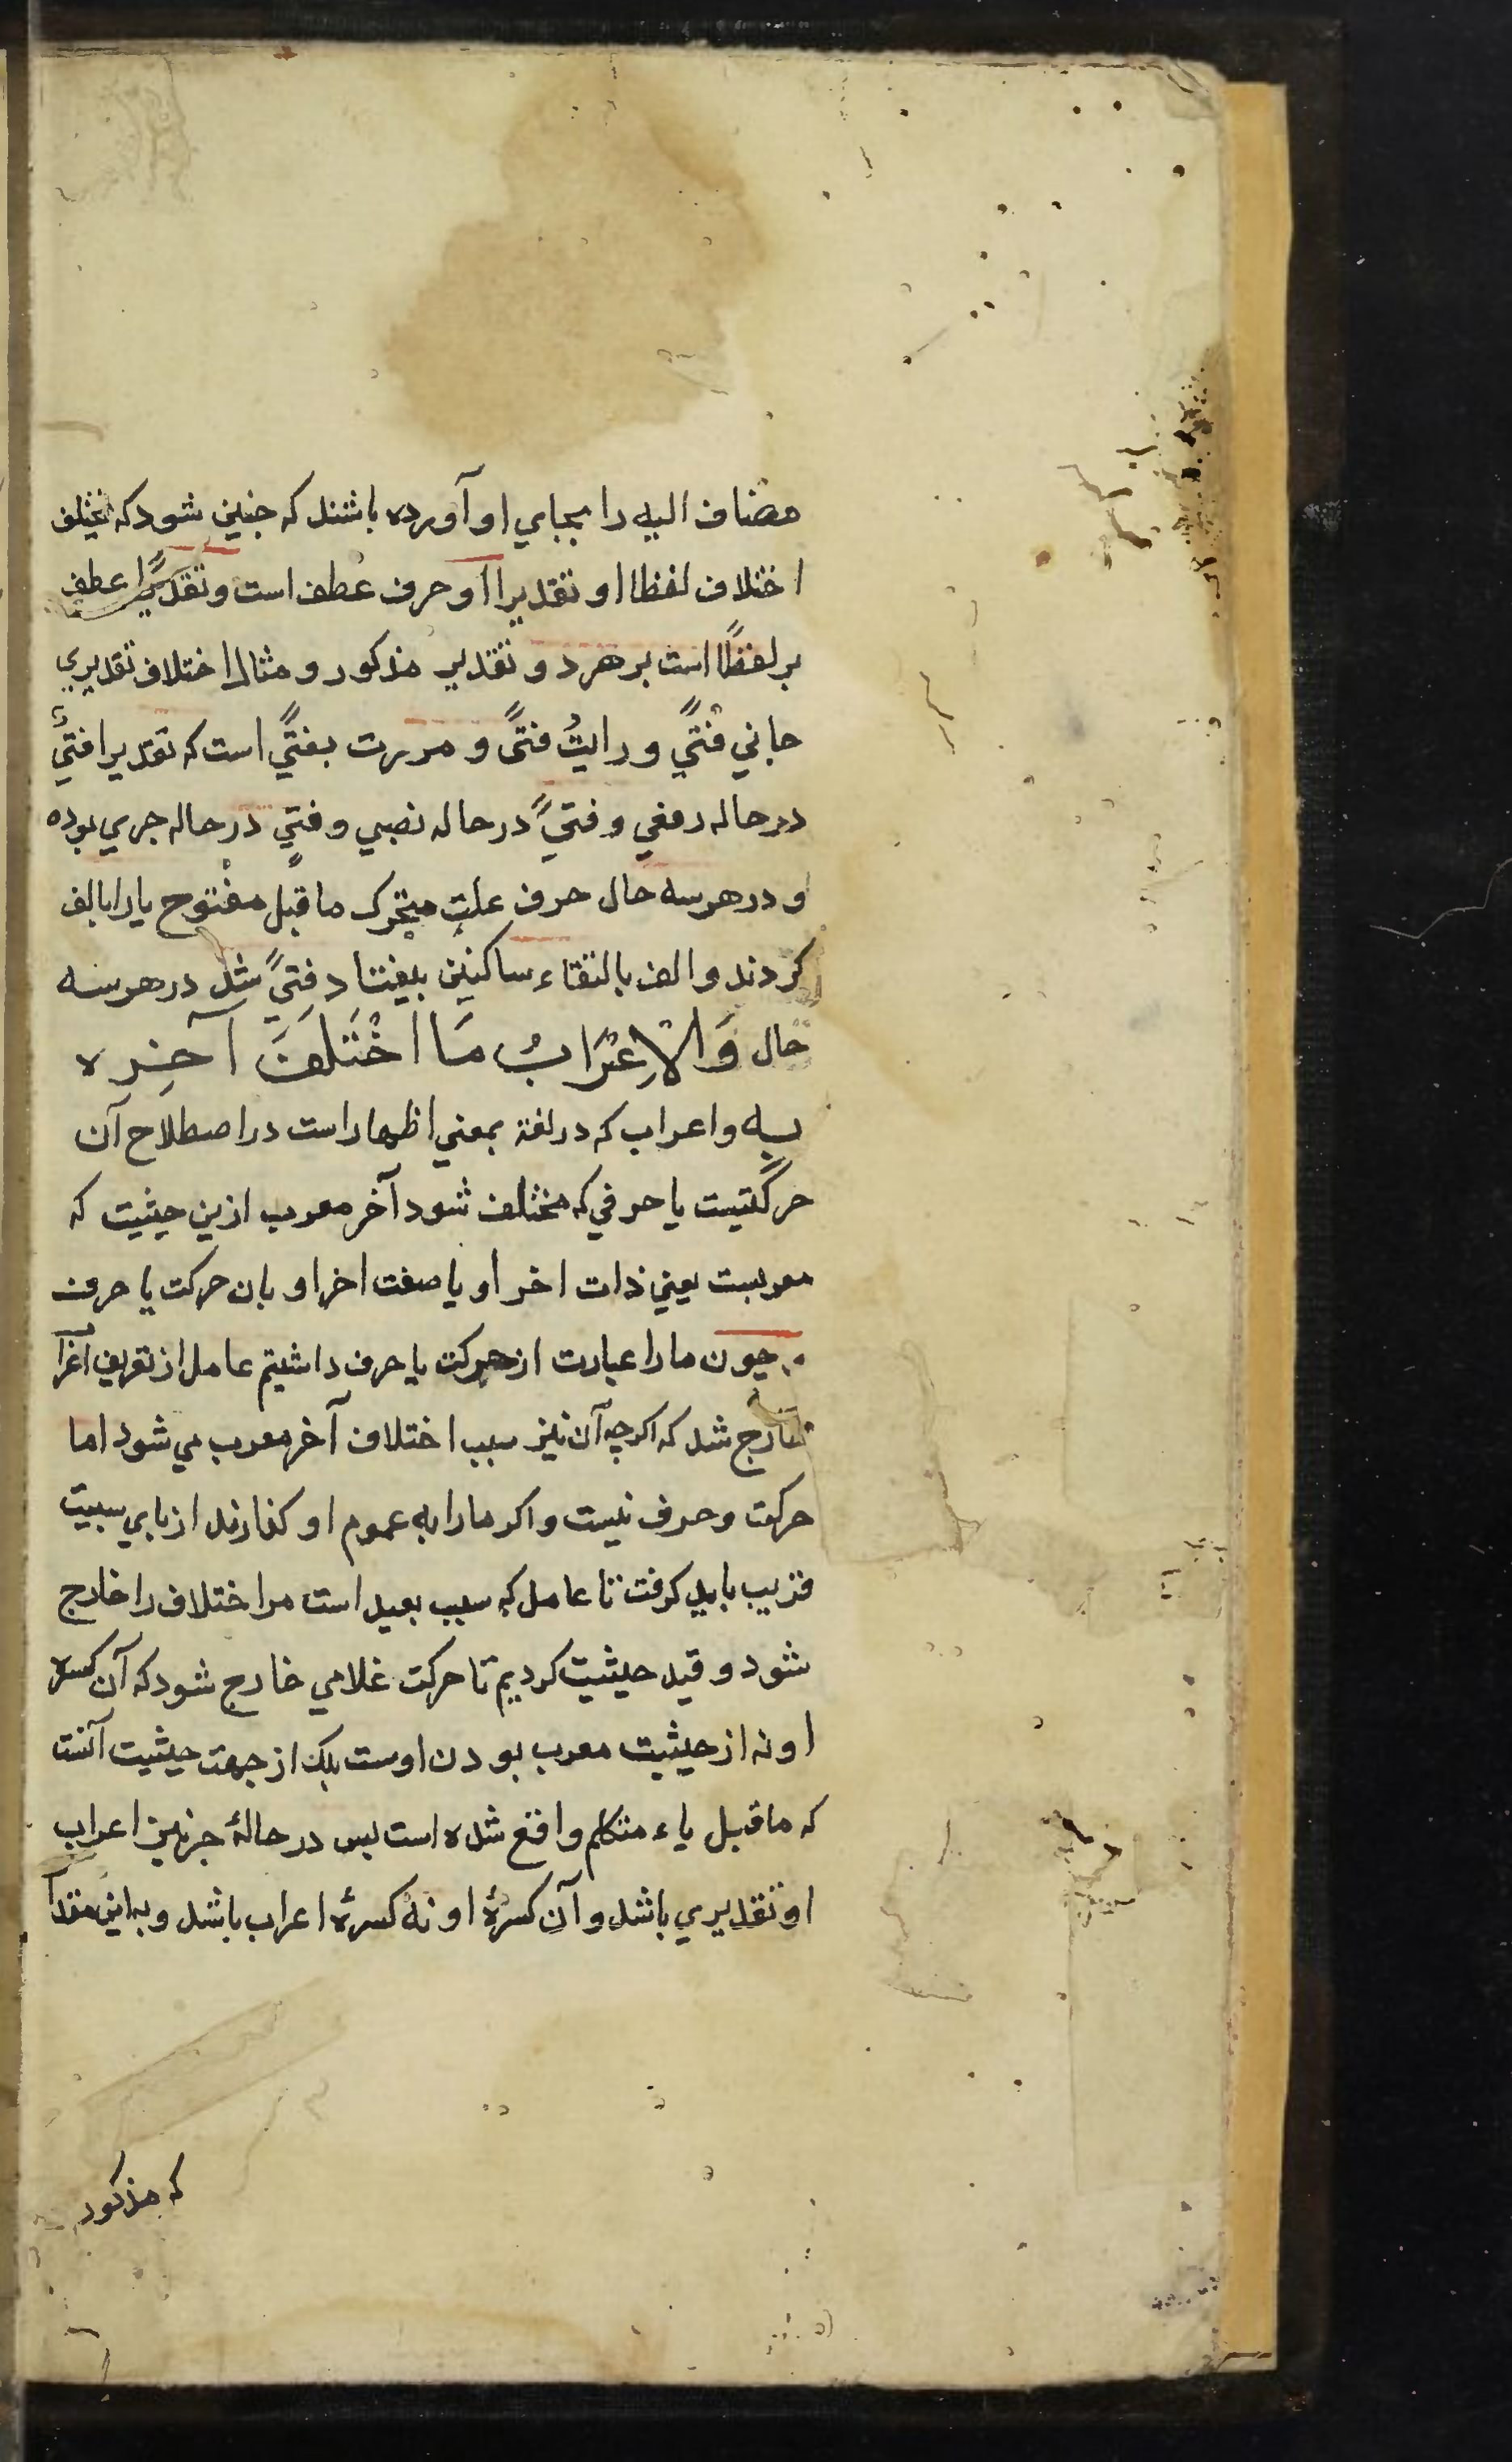 مضاف الیه را بجاي او آورده باشند که جنین شود که یختلف
اختلاف لفظا او تقدیرا او حرف عطف است و تقدیرًا عطف
بر لفظًا است بر هر دو تقدیر مذکور و مثال اختلاف تقدیري
جاني فتًي و رایتُ فتًی و مررت بفتًي است که تقدیرا فتيٌ
در حاله رفعي و فتيًا در حاله نصبي و فتيٍ در حاله جري بوده
و در هر سه حال حرف علت متحرک ماقبل مفتوح یا را بالف
کردند و الف بالتقاء ساکنین بیفتاد فتيً شد در هر سه
حال وَالْاِعْرَابُ مَا اخْتَلَفَ آخِرِه
بِه و اعراب که در لغة بمعني اظهار است در اصطلاح آن
حرکتیست یا حرفي که مختلف شود آخر معرب ازین حیثیت که
معربست یعني ذات اخر او یا صفت اخر او بان حرکت یا حرف
جون ما را عبارت از حرکت یا حرف داشتیم عامل از تعریف اعراب
خارج شد که اکرچه آن نیز سبب اختلاف آخر معرب مي شود اما
حرکت و حرف نیست و اکر ما را به عموم او کذارند از باي سببیت
قریب باید کرفت تا عامل که سبب بعید است مر اختلاف را خارج
شود و قید حیثیت کردیم تا حرکت غلامي خارج شود که آن کسره
او نه از حیثیت معرب بودن اوست بلک از جهت حیثیت آنست
که ماقبل یاء متکلم واقع شده است بس در حالهٔ جر نیز اعراب
او تقدیري باشد و آن کسرهٔ او نه کسرهٔ اعراب باشد و به این مقدار
که مذکور